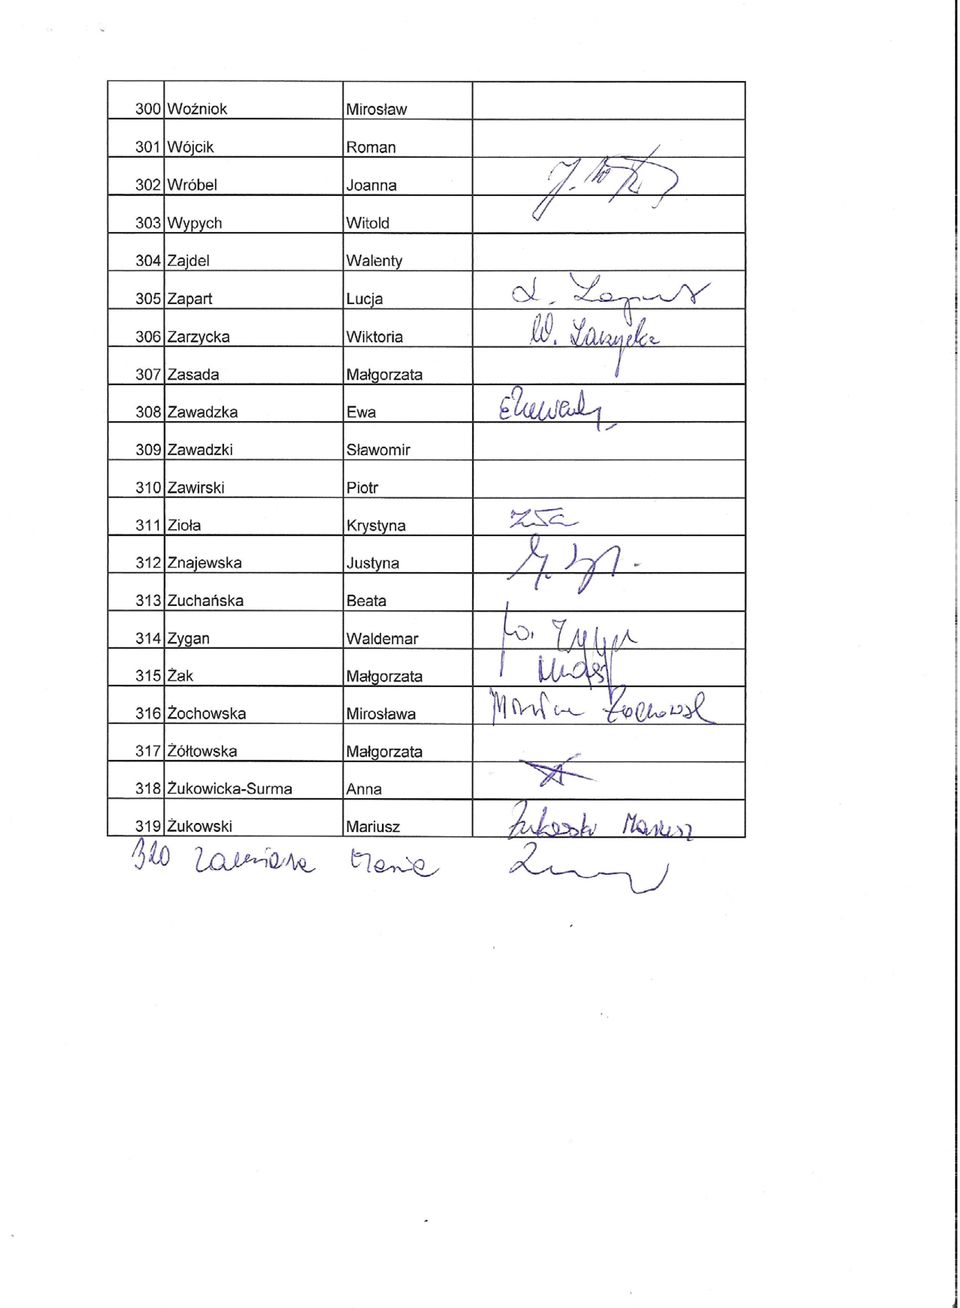 300 Woźniok Mirosław
301 Wójcik Roman
302 Wróbel Joanna
303 Wypych Witold
304 Zajdel Walenty
305 Zapart Lucja
306 Zarzycka Wiktoria W. Zarzycka
307 Zasada Małgorzata
308 Zawadzka Ewa
309 Zawadzki Sławomir
310 Zawirski Piotr
311 Zioła Krystyna
312 Znajewska Justyna
313 Zuchańska Beata
314 Zygan Waldemar
315 Żak Małgorzata
316 Żochowska Mirosława
317 Żółtowska Małgorzata
318 Żukowicka-Surma Anna
319 Żukowski Mariusz Żukowski Mariusz
320